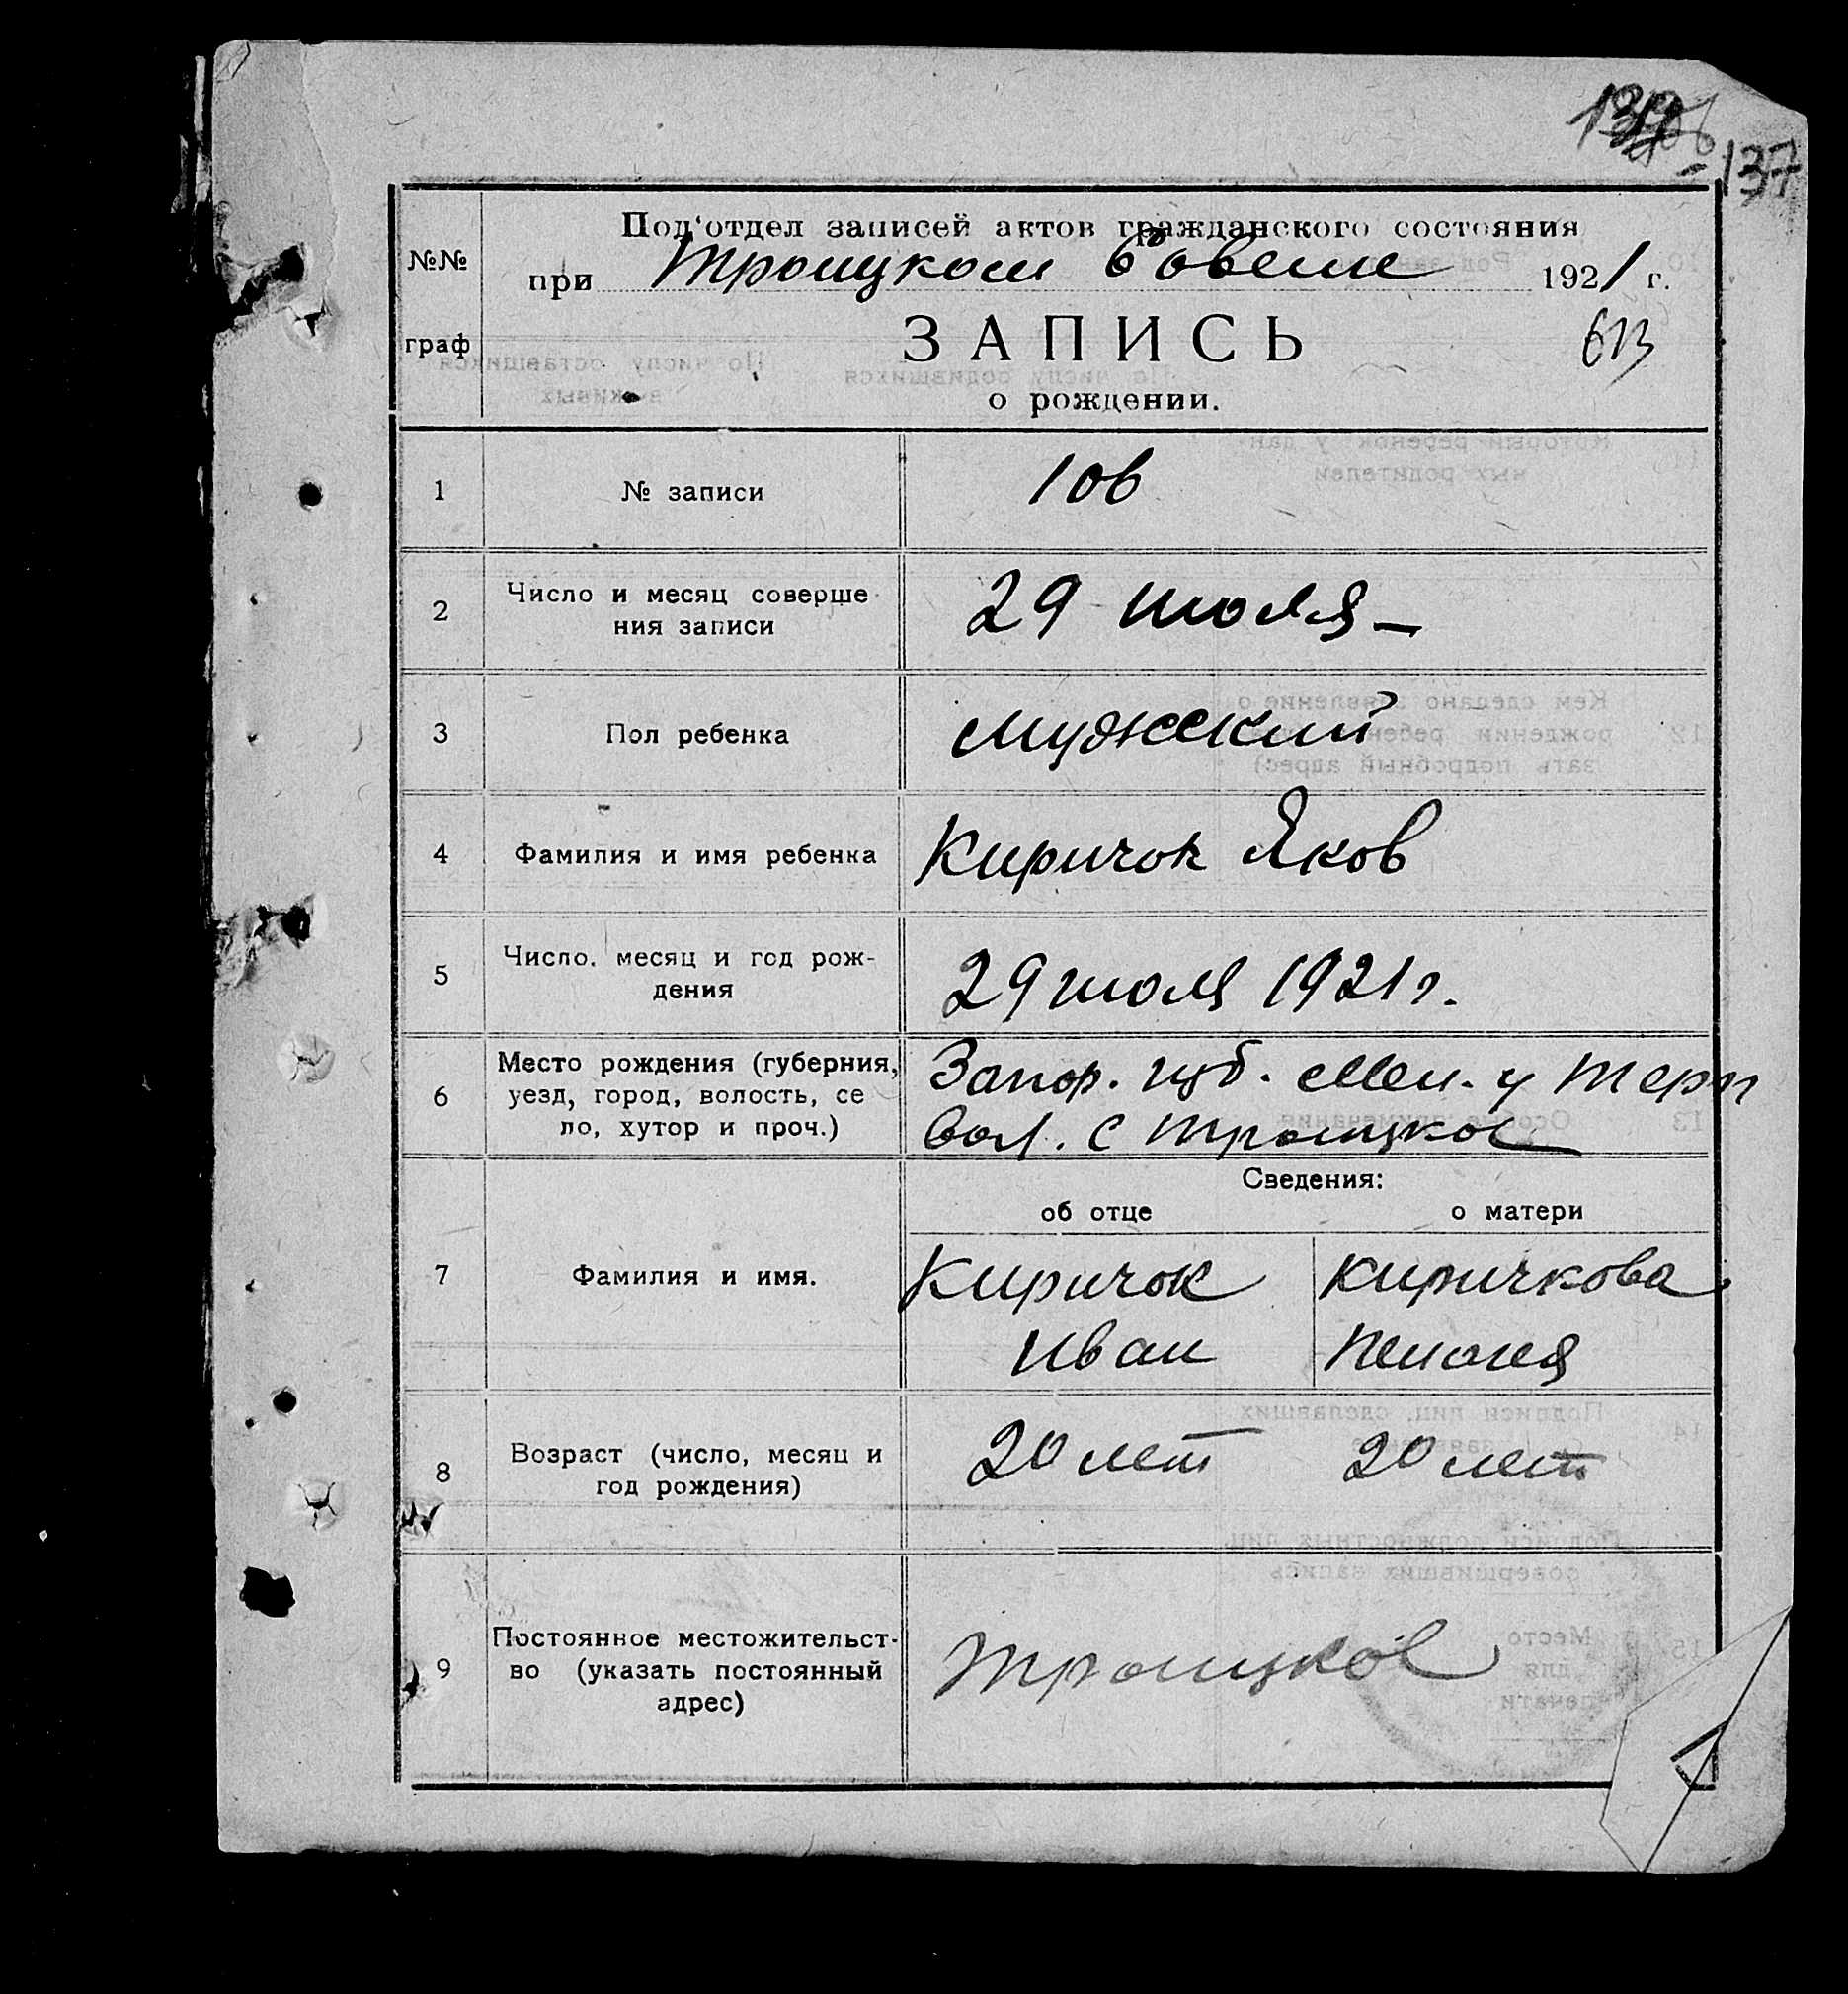 137
Под'отдел записей актов гражданского состояния
№№ при Троицком Совете 1921 г.
граф ЗАПИСЬ
о рождении.
1 № записи 106
2 Число и месяц соверше
ния записи 29 июля –
3 Пол ребенка мужеский
4 Фамилия и имя ребенка Киричок Яков
5 Число, месяц и год рож-
дения 29 июля 1921 г.
6 Место рождения (губерния,
уезд, город, волость, се
ло, хутор и проч.)
Запор. губ. Мел. у Терп
вол. с Троицкое
Сведения:
об отце о матери
7 Фамилия и имя.
Киричок Киричкова
Иван
8 Возраст (число, месяц и
год рождения) 20 лет 20 лет
9 Постоянное местожительст-
во (указать постоянный
адрес)
Троицкое